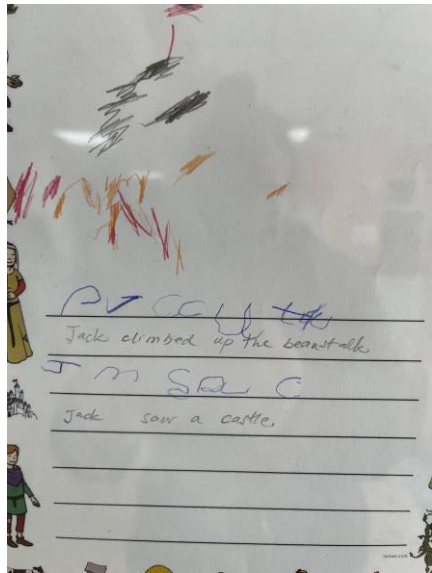 Jack climbed up the beanstalk
J m Sa C
Jack saw a castle.